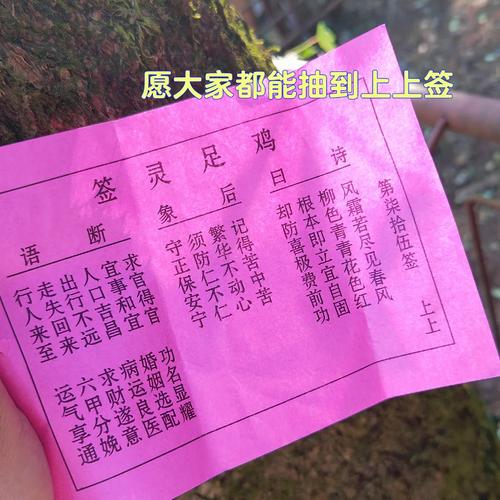 愿大家都能抽到上上签
鸡足灵签
第柒拾伍签 上上
诗曰
风霜若尽见春风
柳色青青花色红
根本即立宜自固
却防喜极费前功
后象
记得苦中苦
繁华不动心
须防仁不仁
守正保安宁
断语
求官得官 功名显耀
宜事和宜 婚姻选配
人口吉昌 病运良医
出行不远 求财遂意
走失回来 六甲分娩
行人来至 运气享通